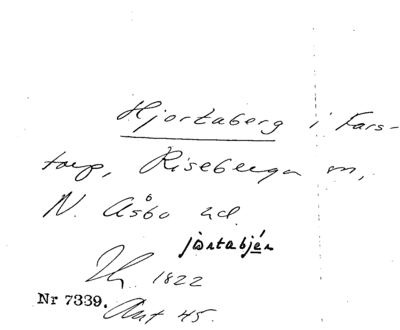 Hjortaberg i Fars-
torp, Riseberga sn,
N. Åsbo hd.
jørtabjér
1822
Nr 7339. Ant 45.